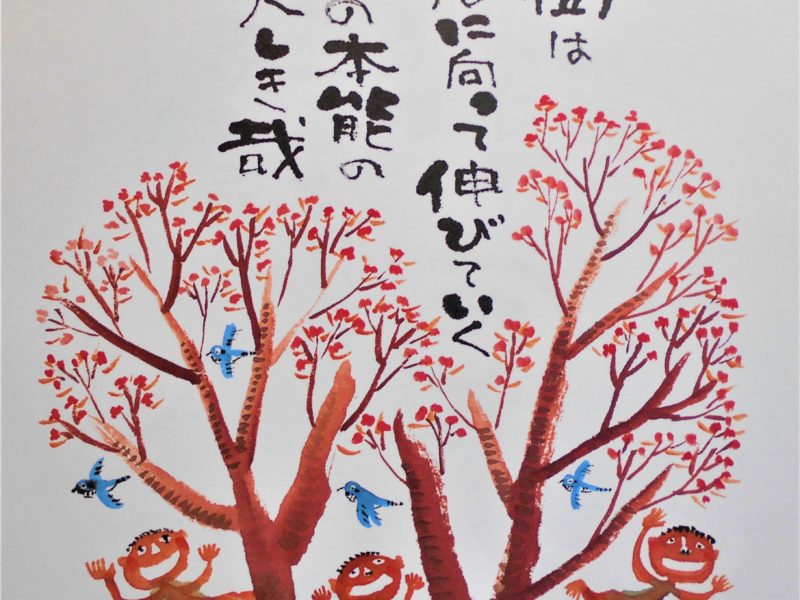 は
に向って伸びていく
の本能の
しき哉